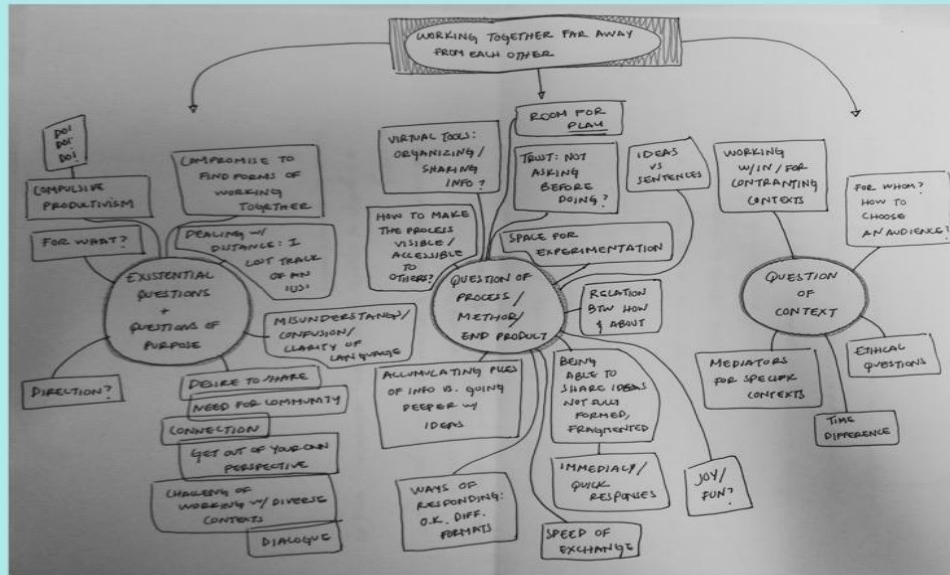 WORKING TOGETHER FAR AWAY
FROM EACH OTHER
DO!
DO!
DO!
COMPULSIVE
PRODUCTIVISM
FOR WHAT?
COMPROMISE TO
FIND FORMS OF
WORKING
TOGETHER
DEALING W/
DISTANCE: I
LOST TRACK
OF AN
"US"
EXISTENTIAL
QUESTIONS
+
QUESTIONS OF
PURPOSE
MISUNDERSTANGS/
CONFUSION/
CLARITY OF
LANGUAGE
DIRECTION?
DESIRE TO SHARE
NEED FOR COMMUNITY
CONNECTION
GET OUT OF YOUR OWN
PERSPECTIVE
CHALLENG OF
WORKING W/ DIVERSE
CONTEXTS
DIALOGUE
VIRTUAL TOOLS:
ORGANIZING/
SHARING
INFO?
ROOM FOR
PLAY
TRUST: NOT
ASKING
BEFORE
DOING?
IDEAS
VS
SENTENCES
HOW TO MAKE
THE PROCESS
VISIBLE/
ACCESSIBLE
TO
OTHERS?
SPACE FOR
EXPERIMENTATION
QUESTION OF
PROCESS/
METHOD/
END PRODUCT
RELATION
BTW HOW
& ABOUT
ACCUMULATING PILES
OF INFO VS. GOING
DEEPER W/
IDEAS
BEING
ABLE TO
SHARE IDEAS
NOT FULLY
FORMED,
FRAGMENTED
WAYS OF
RESPONDING:
O.K. DIFF.
FORMATS
IMMEDIACY/
QUICK
RESPONSES
SPEED OF
EXCHANGE
JOY/
FUN?
WORKING
W/IN/FOR
CONTRANTING
CONTEXTS
FOR WHOM?
HOW TO
CHOOSE
AN AUDIENCE?
QUESTION
OF
CONTEXT
MEDIATORS
FOR SPECIFIC
CONTEXTS
ETHICAL
QUESTIONS
TIME
DIFFERENCE